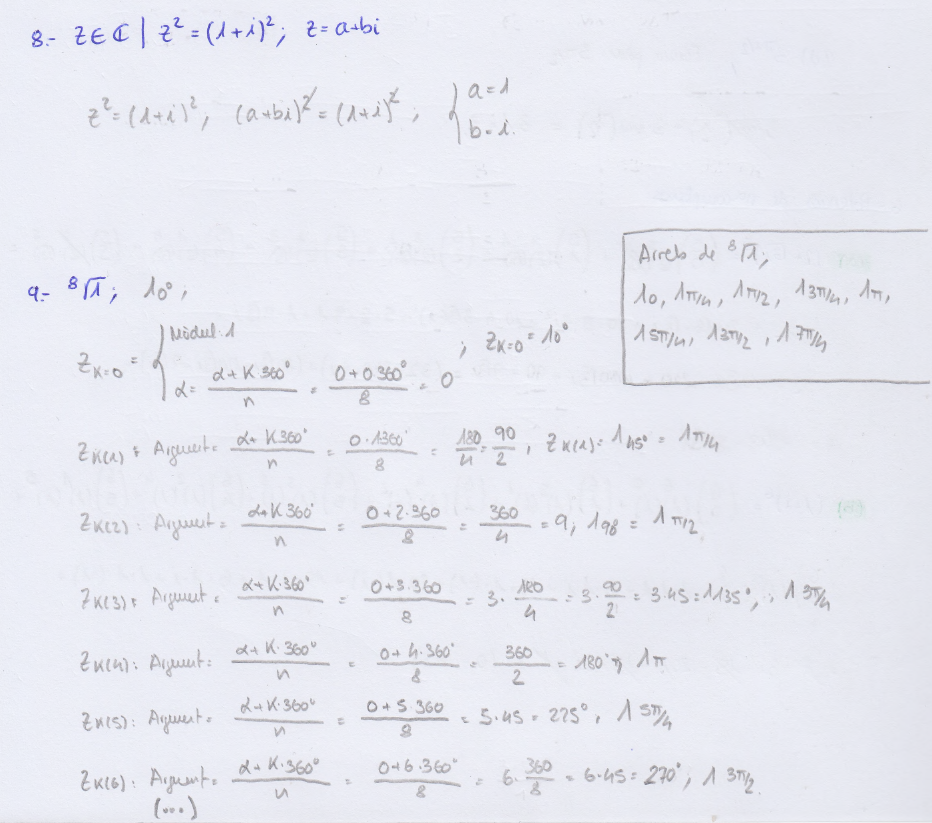 8.- z ∈ ℂ | z² = (1+i)²; z = a+bi
z² = (1+i)², (a+bi)² = (1+i)²; { a = 1
b = i.
9.- ⁸√1; 1 0°;
Arrels de ⁸√1;
1 0, 1 π/4, 1 π/2, 1 3π/4, 1 π,
1 5π/4, 1 3π/2, 1 7π/4
Z K=0 = { Mòdul: 1
α = (α + K·360°)/n = (0+0 360°)/8 = 0 ; Z K=0 = 1 0°
Z K(1) : Argument = (α + K360°)/n = (0·1360°)/8 = 180/4 = 90/2, Z K(1) = 1 45° = 1 π/4
Z K(2): Argument = (α+K360°)/n = (0+2·360)/8 = 360/4 = 9, 1 90 = 1 π/2
Z K(3): Argument = (α+K·360°)/n = (0+3·360)/8 = 3·180/4 = 3·90/2 = 3·45 = 1 135°, 1 3π/4
Z K(4): Argument = (α+K·360°)/n = (0+4·360°)/8 = 360/2 = 180°, 1 π
Z K(5): Argument = (α+K·360°)/n = (0+5·360)/8 = 5·45 = 225°, 1 5π/4
Z K(6): Argument = (α+K·360°)/n = (0+6·360°)/8 = 6·360/8 = 6·45 = 270°, 1 3π/2
(...)